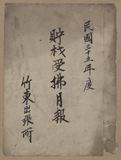 民國三十五年度
貯材受拂月報
竹東出張所